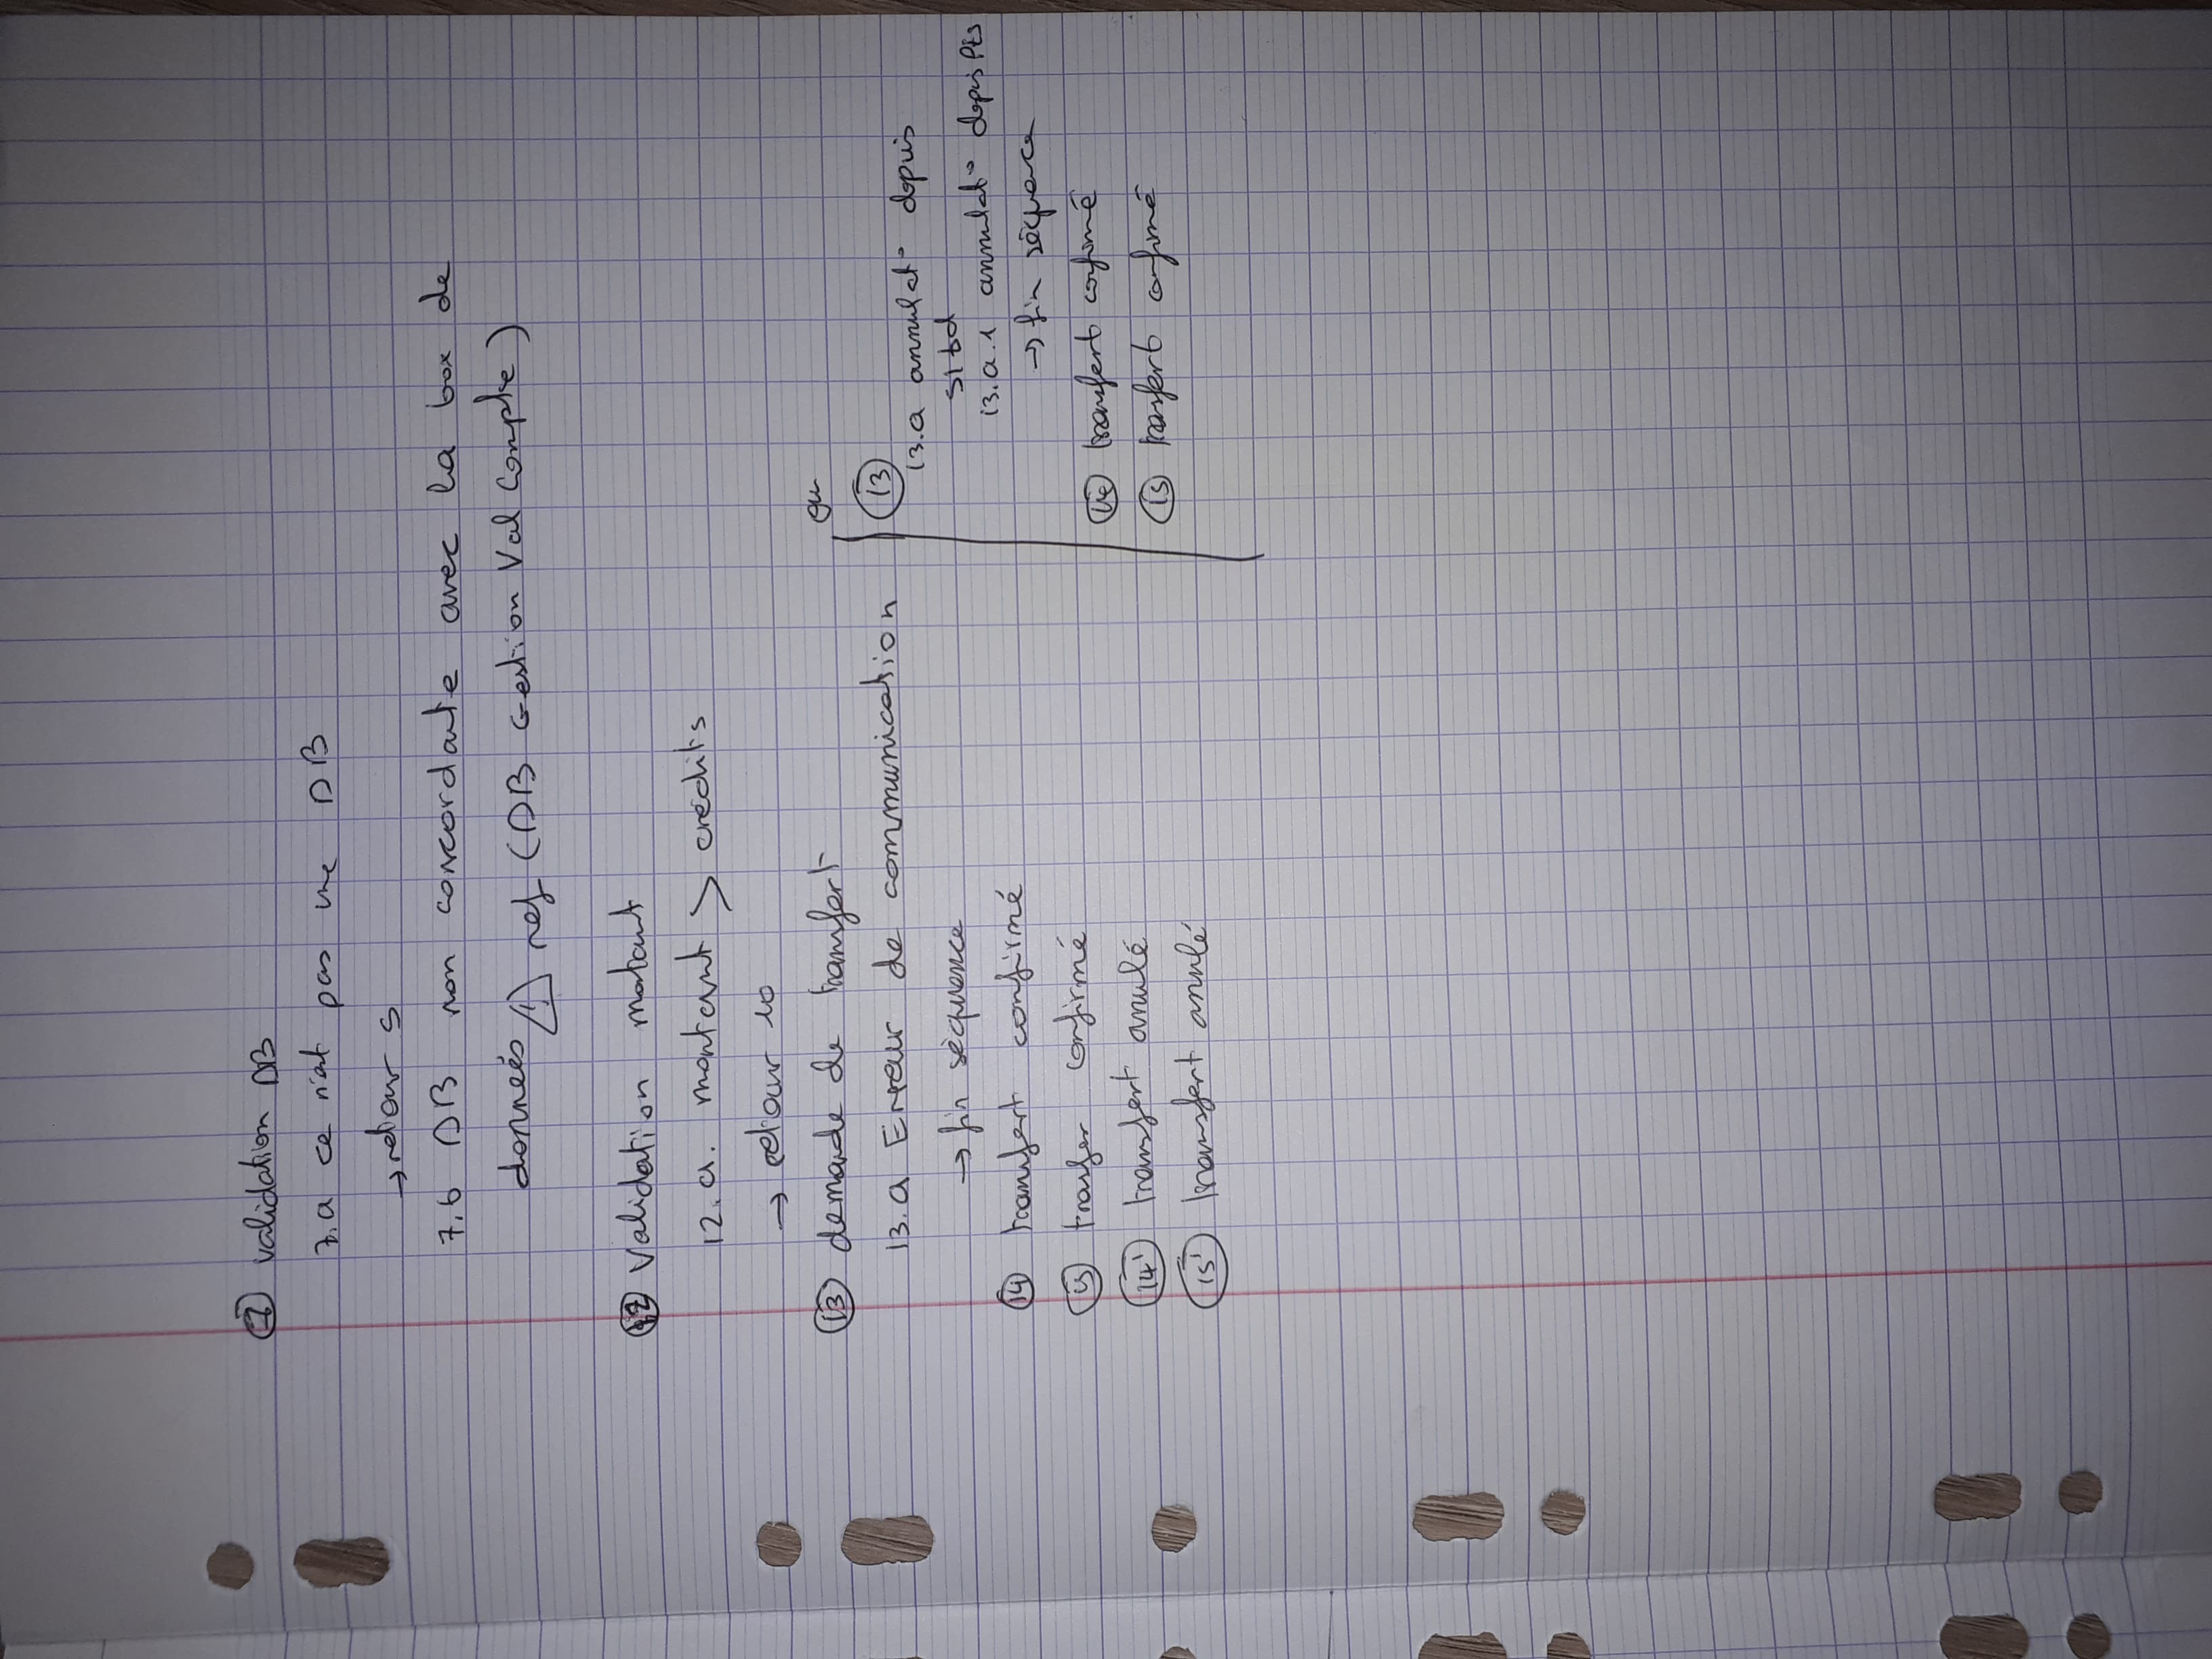 7 validation DB
7.a ce n'est pas une DB
→ retour 5
7.b DB non concordante avec la box de
données ⚠ ref (DB Gestion Val Compte)
12 Validation montant
12.a. montant > crédits
→ retour 10
13 demande de transfert
13.a Erreur de communication
→ fin séquence
14 transfert confirmé
15 transfer confirmé
14' transfert annulé
15' transfert annulé
ou
13
13.a annulat° depuis
13.a.1 annulat° depuis
→ fin séquence
14 transfert confirmé
15 transfert confirmé